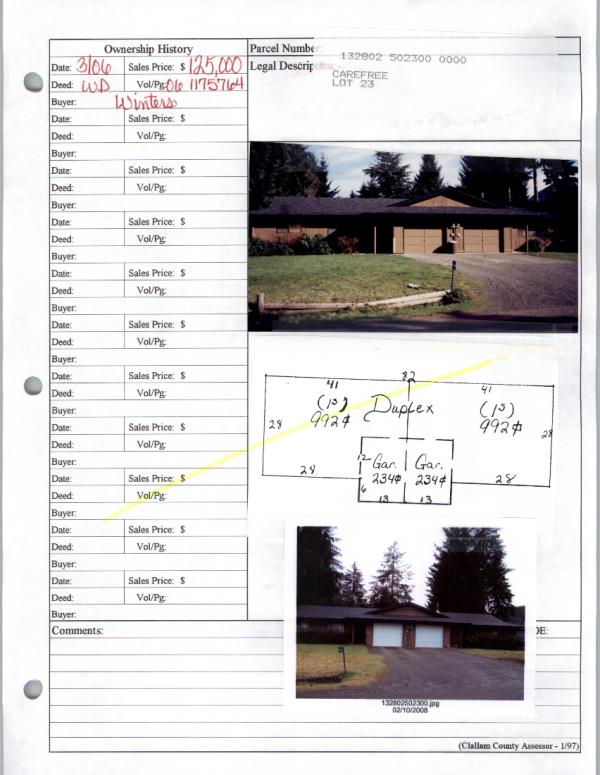 Ownership History
Date: 3/06 Sales Price: $ 125,000
Deed: WD Vol/Pg: 06 1175764
Buyer: Winters
Date: Sales Price: $
Deed: Vol/Pg:
Buyer:
Date: Sales Price: $
Deed: Vol/Pg:
Buyer:
Date: Sales Price: $
Deed: Vol/Pg:
Buyer:
Date: Sales Price: $
Deed: Vol/Pg:
Buyer:
Date: Sales Price: $
Deed: Vol/Pg:
Buyer:
Date: Sales Price: $
Deed: Vol/Pg:
Buyer:
Date: Sales Price: $
Deed: Vol/Pg:
Buyer:
Date: Sales Price: $
Deed: Vol/Pg:
Buyer:
Date: Sales Price: $
Deed: Vol/Pg:
Buyer:
Date: Sales Price: $
Deed: Vol/Pg:
Buyer:
Parcel Number
132802 502300 0000
Legal Descrip
CAREFREE
LOT 23
41 82 41
(1S) Duplex (1S)
992¢ 992¢
28 28
12 Gar. Gar.
234¢ 234¢
28 28
6 13 13
132802502300.jpg
02/10/2008
Comments:
DE:
(Clallam County Assessor - 1/97)